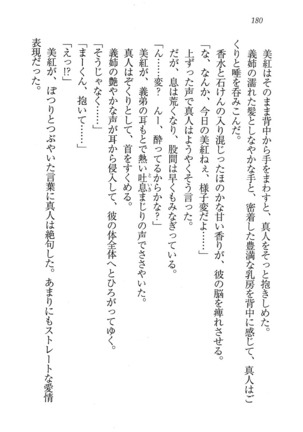 180
美紅はそのまま背中から手をまわすと、真人をそっと抱きしめた。
義姉の濡れた髪としなやかな手と、密着した豊満な乳房を背中に感じて、真人はご
くりと唾を呑みこんだ。
香水と石けんの入り混じったほのかな甘い香りが、彼の脳を痺れさせる。
「な、なんか、今日の美紅ねぇ、様子変だよ……」
上ずった声で真人はようやくそう言った。
だが、息は荒くなり、股間は早くもみなぎっている。
「ん……変？　んー、酔ってるからかな？」
美紅が、義弟の耳もとで熱い吐息まじりの声でささやいた。
真人はぞくりとして、首をすくめる。
義姉の艶やかな声が耳から侵入して、彼の体全体へとひろがってゆく。
「そうじゃなくて……」
「まーくん、抱いて……」
「えっ!?」
美紅が、ぽつりとつぶやいた言葉に真人は絶句した。あまりにもストレートな愛情
表現だった。